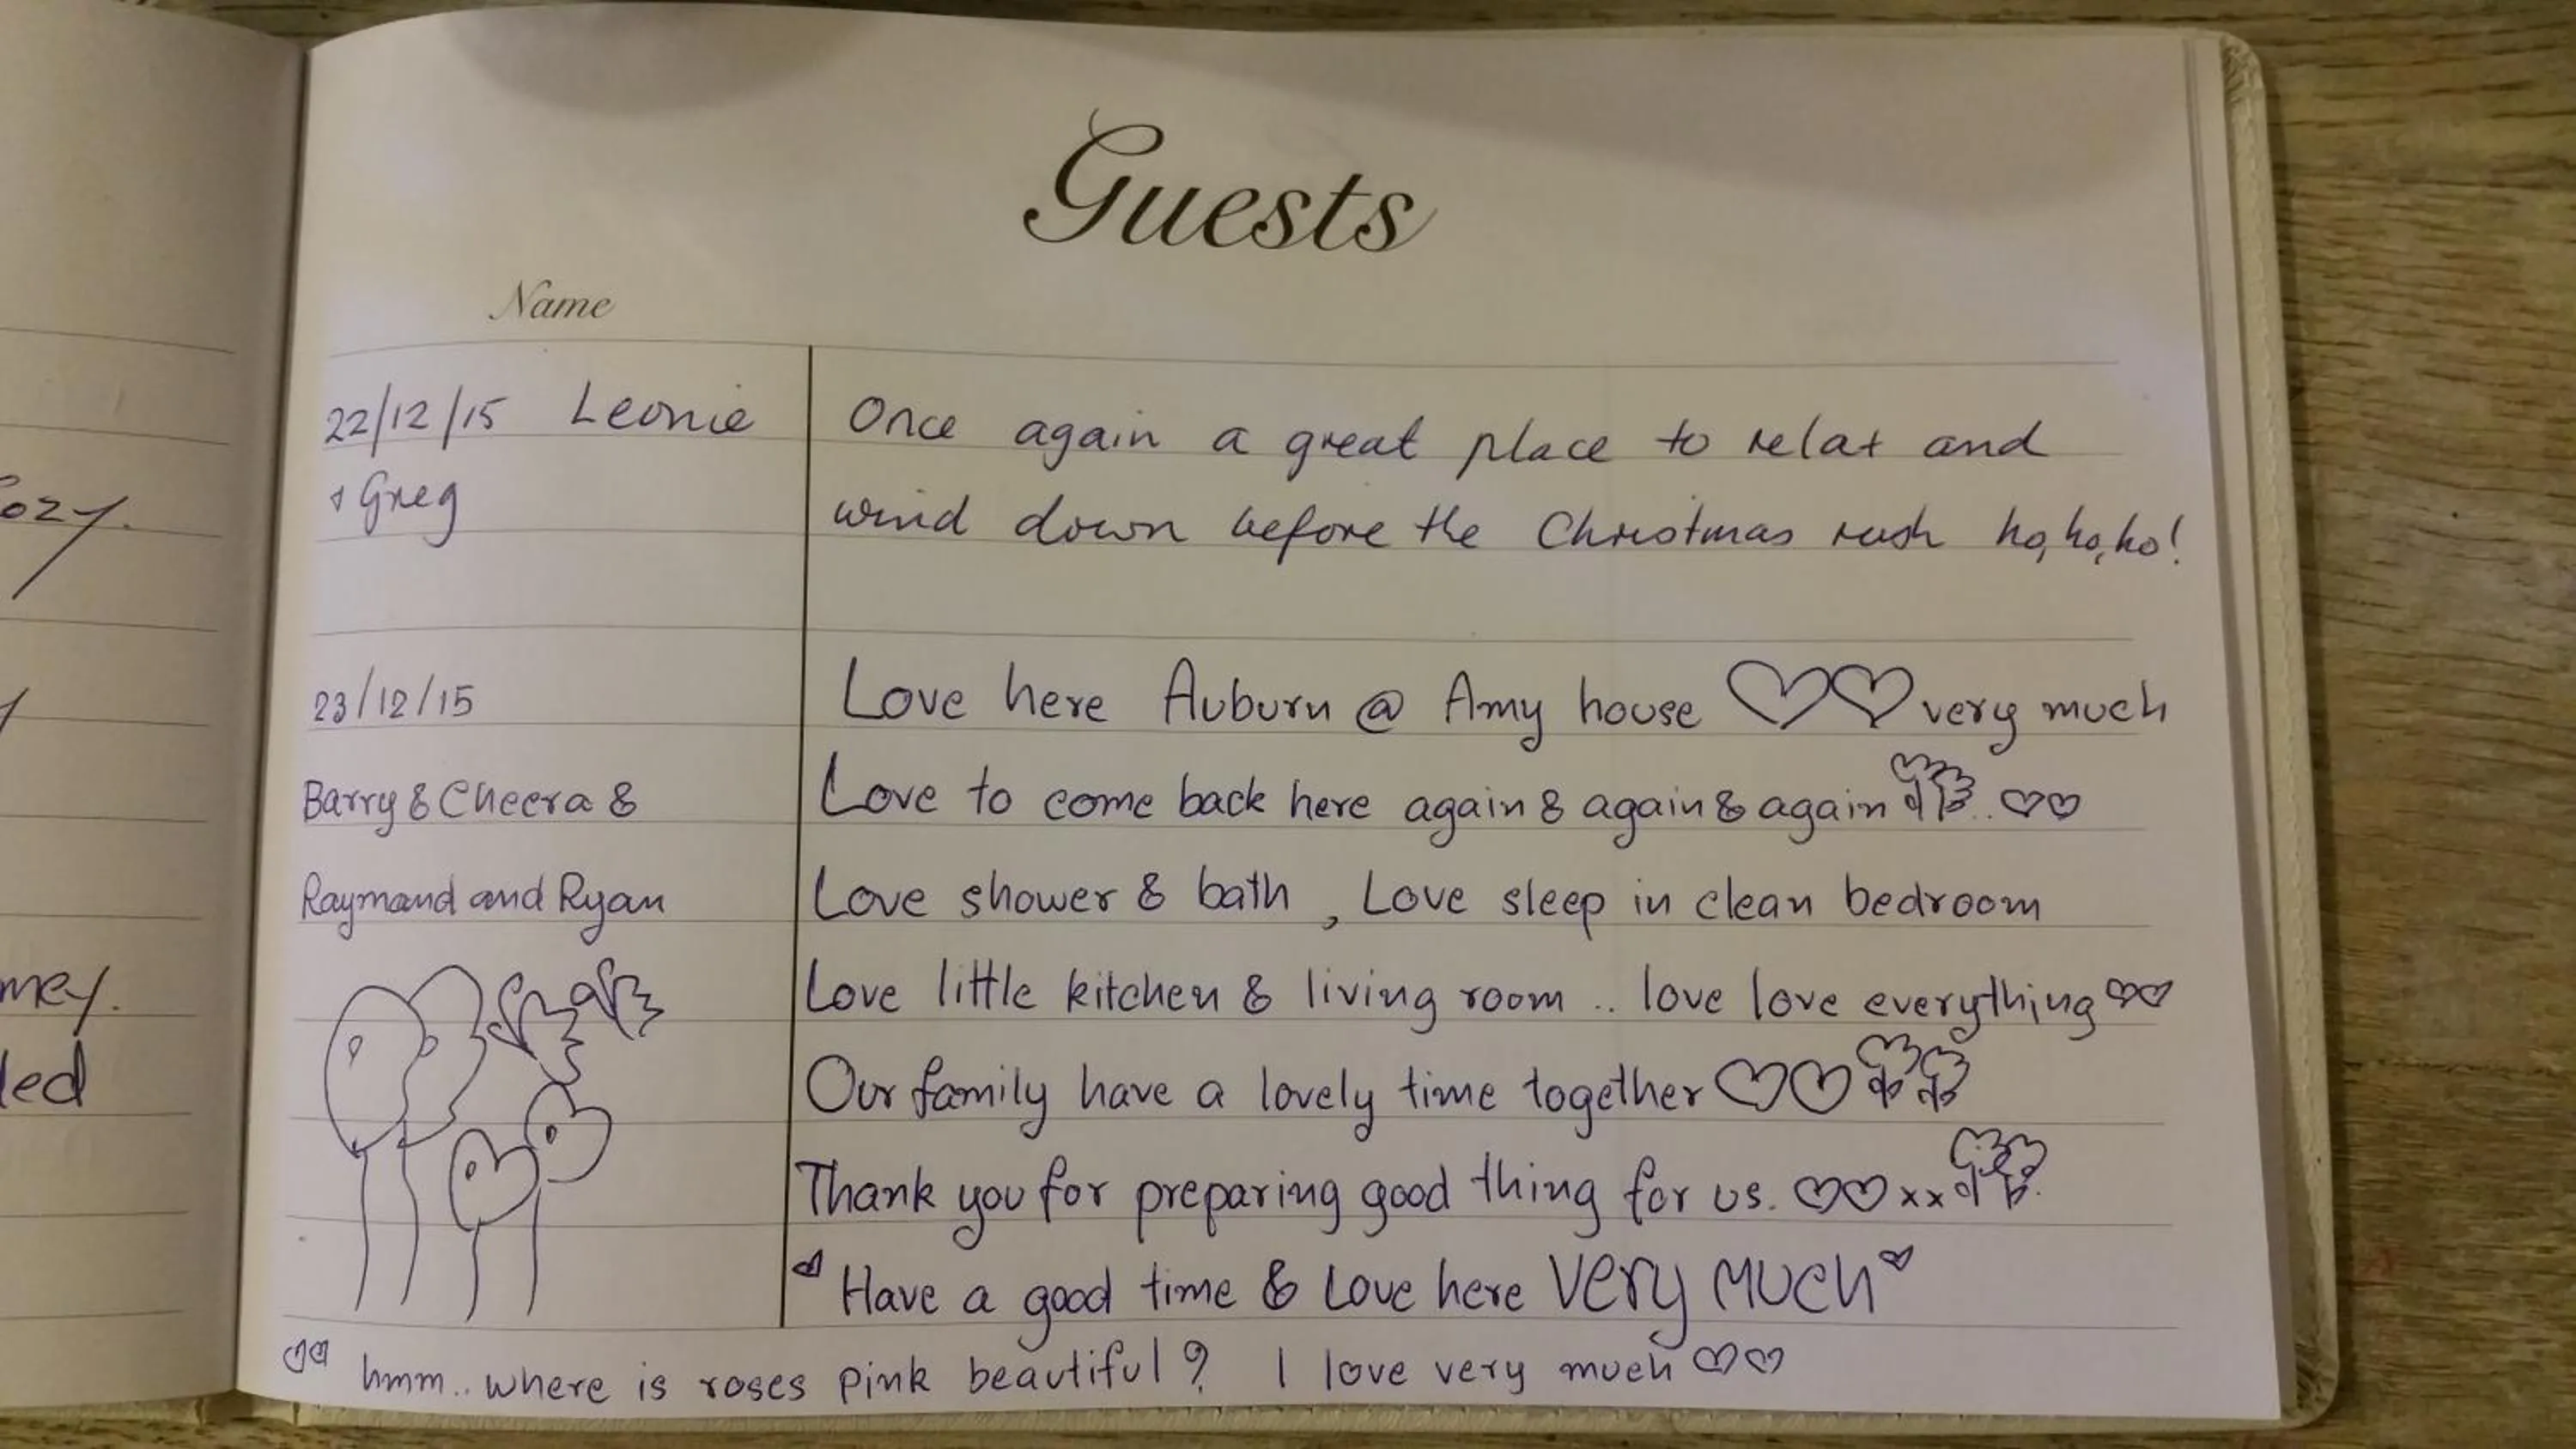 Guests
Name
22/12/15 Leonie
+ Greg
Once again a great place to relax and
wind down before the Christmas rush ho, ho, ho!
23/12/15
Barry & Cheera &
Raymand and Ryan
Love here Auburn @ Amy house ♡♡ very much
Love to come back here again & again & again .. ♡♡
Love shower & bath , Love sleep in clean bedroom
Love little kitchen & living room .. love love everything ♡♡
Our family have a lovely time together ♡♡
Thank you for preparing good thing for us. ♡♡ xx
♡ Have a good time & Love here very much ♡
♡♡ hmm.. where is roses pink beautiful? I love very much ♡♡
ozy.
mey.
led